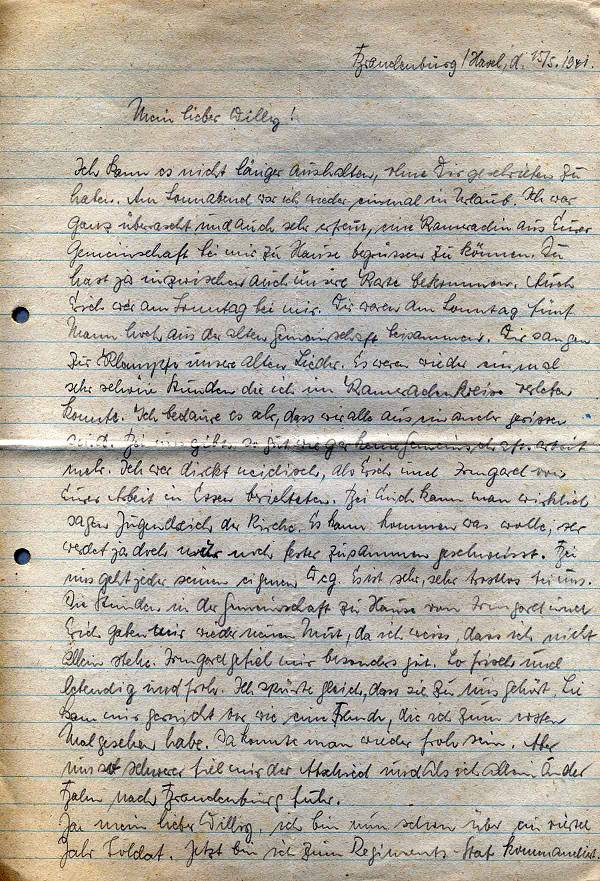 Brandenburg / Havel, d. 15/5. 1941.
Mein lieber Willy!
Ich kann es nicht länger aushalten, ohne Dir geschrieben zu
haben. Am Sonnabend war ich wieder einmal in Urlaub. Ich war
ganz überrascht und auch sehr erfreut, eine Kameradin aus Eurer
Gemeinschaft bei mir zu Hause begrüssen zu können. Du
hast ja inzwischen auch unsere Karte bekommen. Auch
Erich war am Sonntag bei mir. Wir waren am Sonntag fünf
Mann hoch aus der alten Gemeinschaft beisammen. Wir sangen
zur Klampfe unsere alten Lieder. Es waren wieder einmal
sehr schöne Stunden die ich im Kameradenkreise verleben
konnte. Ich bedaure es ab, dass wir alle aus einander gerissen
sind. Bei uns gibt es so gut wie gar keine Gemeinschaftsarbeit
mehr. Ich war direkt neidisch, als Erich und Irmgard von
Eurer Arbeit in Essen berichteten. Bei Euch kann man wirklich
sagen Jugendreich der Kirche. Es kann kommen was wolle, Ihr
werdet ja doch nur noch fester zusammen geschweisst. Bei
uns geht jeder seinen eigenen Weg. Es ist sehr, sehr trostlos bei uns.
Die Stunden in der Gemeinschaft zu Hause von Irmgard und
Erich gaben mir wieder neuen Mut, da ich weiss, dass ich nicht
allein stehe. Irmgard gefiel mir besonders gut. So frisch und
lebendig und froh. Ich spürte gleich, dass sie zu uns gehört. Sie
kam mir gar nicht vor wie eine Fremde, die ich zum ersten
Mal gesehen habe. Da konnte man wieder froh sein. Aber
um so schwerer fiel mir der Abschied und als ich allein in der
Bahn nach Brandenburg fuhr.
Ja mein lieber Willy, ich bin nun schon über ein viertel
Jahr Soldat. Jetzt bin ich zum Regiments-Stab kommandiert.